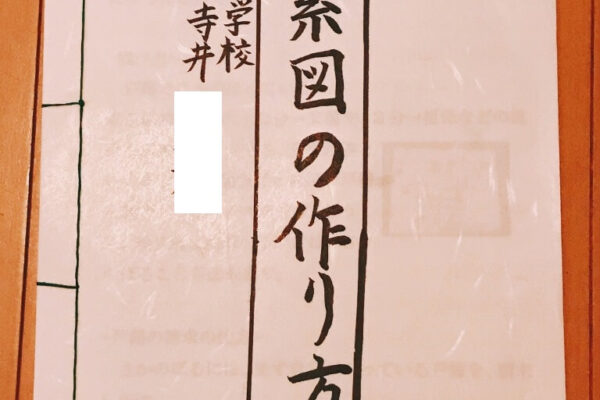 系図の作り方
学校
寺井